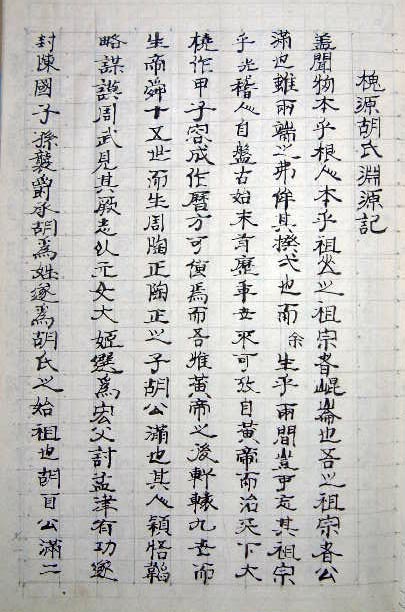 槐源胡氏淵源記
盖聞物本乎根人本乎祖災之祖宗者崐崙也吾之祖宗者公
滿也雖兩端之弗侔其揆弌也而余生乎兩間豈可忘其祖宗
乎光稽人自盤古始未有歷事世不可攷自黄帝而治天下大
橈作甲子容成作曆方可傎焉而吾雅黄帝之後軒轅九世而
生帝舜十又世而生周陶正陶正之子胡公滿也其人穎悟韜
略謀謨周武見其厥志以元女大姬選為宏父討孟津有功遂
封陳國子孫襲爵承胡為姓遂為胡氏之始祖也胡自公滿二